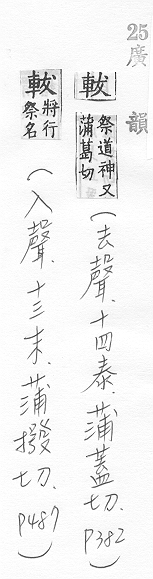 25廣韻
軷 祭道神又蒲葛切(去聲.十四泰.蒲蓋切.P382)
軷 將行祭名(入聲.十三末.蒲撥切.P487)